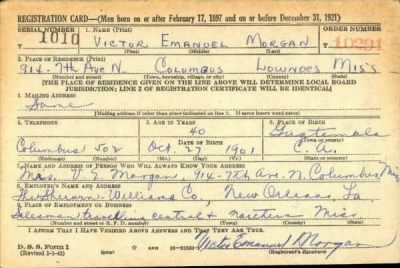 REGISTRATION CARD—(Men born on or after February 17, 1897 and on or before December 31, 1921)
SERIAL NUMBER 1. NAME (Print) ORDER NUMBER
1010 VICTOR EMANUEL MORGAN 10291
2. PLACE OF RESIDENCE (Print)
914-7th Ave N. COLUMBUS LOWNDES MISS
(Number and street) (Town, township, village, or city) (County) (State)
[THE PLACE OF RESIDENCE GIVEN ON THE LINE ABOVE WILL DETERMINE LOCAL BOARD
JURISDICTION; LINE 2 OF REGISTRATION CERTIFICATE WILL BE IDENTICAL]
3. MAILING ADDRESS
Same
[Mailing address if other than place indicated on line 2. If same insert word same]
4. TELEPHONE 5. AGE IN YEARS 6. PLACE OF BIRTH
40 Guatemala
DATE OF BIRTH (Town or county)
Columbus 502 Oct. 27 1901 C. A.
(Exchange) (Number) (Mo.) (Day) (Yr.) (State or country)
7. NAME AND ADDRESS OF PERSON WHO WILL ALWAYS KNOW YOUR ADDRESS
Mrs. V. E. Morgan, 914-7th Ave. N. Columbus, Miss
8. EMPLOYER'S NAME AND ADDRESS
The Sherwin-Williams Co., New Orleans, La
9. PLACE OF EMPLOYMENT OR BUSINESS
Salesman travelling central & northern Miss
(Number and street or R. F. D. number) (Town) (County) (State)
I AFFIRM THAT I HAVE VERIFIED ABOVE ANSWERS AND THAT THEY ARE TRUE.
D. S. S. Form 1
(Revised 1-1-42) Victor Emanuel Morgan
(Registrant's signature)